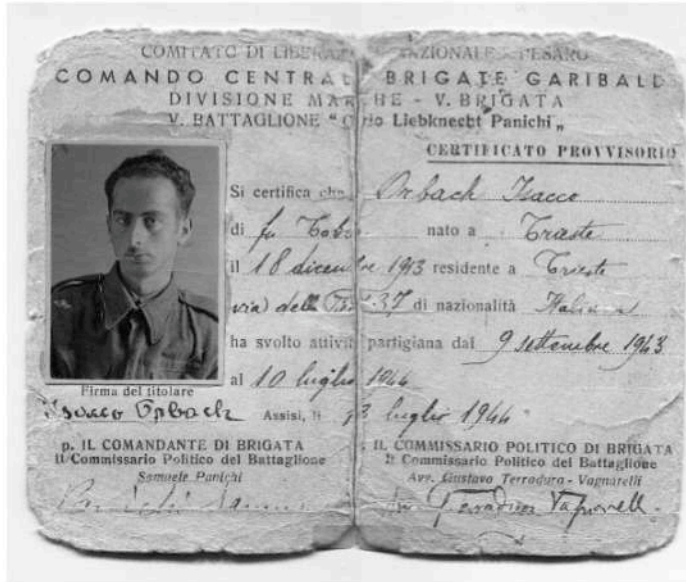 COMITATO DI LIBERAZIONE NAZIONALE - PESARO
COMANDO CENTRAL BRIGATE GARIBALD
DIVISIONE MARCHE - V. BRIGATA
V. BATTAGLIONE "Carlo Liebknecht Panichi„
CERTIFICATO PROVVISORIO
Si certifica che Orbach Isacco
di fu nato a Trieste
il 18 dicembre 1913 residente a Trieste
via della 37 di nazionalità Italiana
ha svolto attività partigiana dal 9 settembre 1943
al 10 luglio 1944
Firma del titolare
Isacco Orbach Assisi, li luglio 1944
p. IL COMANDANTE DI BRIGATA
Il Commissario Politico del Battaglione
Samuele Panichi
IL COMMISSARIO POLITICO DI BRIGATA
Il Commissario Politico del Battaglione
Avv. Gustavo Terradura - Vagnarelli